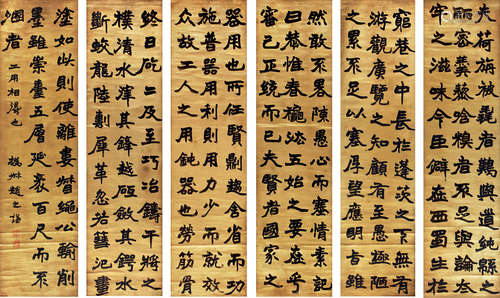 夫荷旃被毳者難與道純緜之
麗密羹藜唅糗者不足與論太
牢之滋味今臣僻在西蜀生於
窮巷之中長於蓬茨之下無有
游觀廣覽之知顧有至愚極陋
之累不足以塞厚望應明旨雖
然敢不略陳愚心而杼情素記
曰恭惟春秋法五始之要在乎
審己正統而已夫賢者國家之
器用也所任賢則趨舍省而功
施普器用利則用力少而就效
眾故工人之用鈍器也勞筋骨
終日矻矻及至巧冶鑄干將之
樸清水淬其鋒越砥斂其鍔水
斷蛟龍陸剸犀革忽若篲氾畫
塗如此則使離婁督繩公輸削
墨雖崇臺五層延袤百尺而不
溷者 工用相得也 撝叔趙之謙